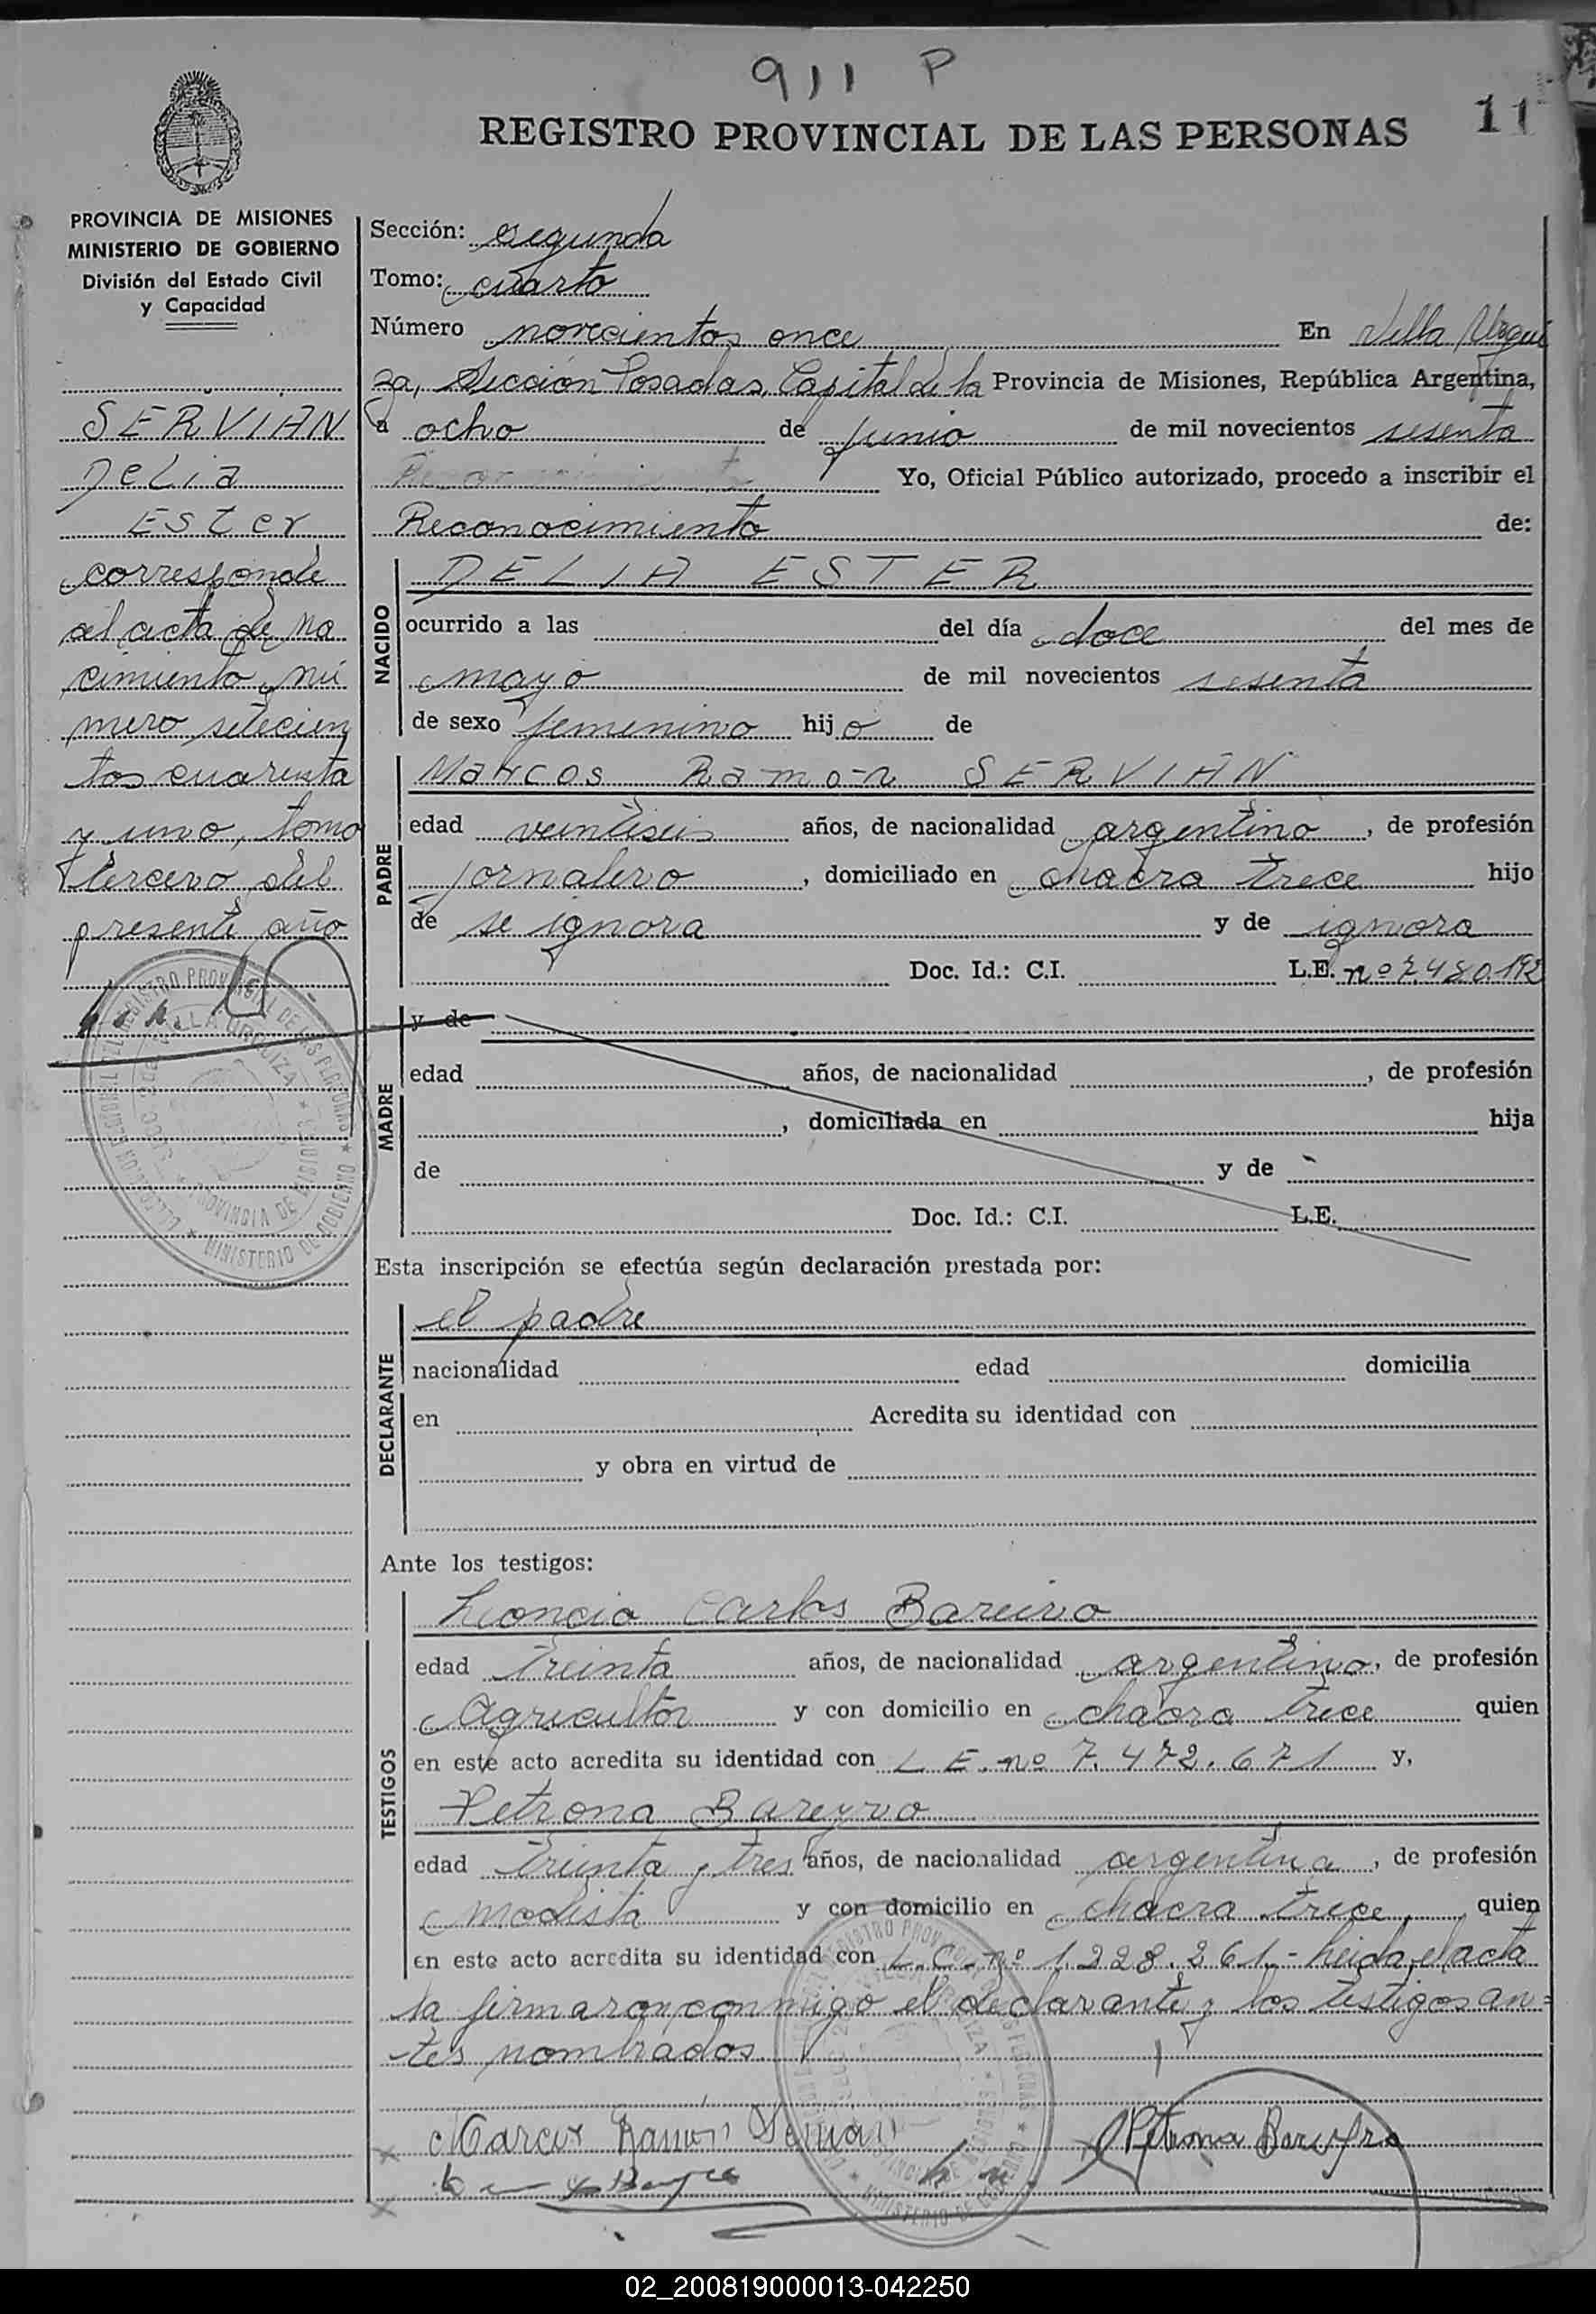 911 P
11
REGISTRO PROVINCIAL DE LAS PERSONAS
PROVINCIA DE MISIONES
MINISTERIO DE GOBIERNO
División del Estado Civil
y Capacidad
SERVIAN
Delia
Ester
corresponde
al acta de na
cimiento nú
mero setecien
tos cuarenta
y uno, tomo
tercero del
presente año
Sección: segunda
Tomo: cuarto
Número novecientos once En Villa Urqui
za, Sección Posadas, Capital de la Provincia de Misiones, República Argentina,
a ocho de junio de mil novecientos sesenta
Yo, Oficial Público autorizado, procedo a inscribir el
Reconocimiento de:
NACIDO
DELIA ESTER
ocurrido a las del día doce del mes de
mayo de mil novecientos sesenta
de sexo femenino hijo de
PADRE
Marcos Ramón SERVIAN
edad veintiseis años, de nacionalidad argentino, de profesión
jornalero, domiciliado en chacra trece hijo
de se ignora y de ignora
Doc. Id.: C.I. L.E. nº 7.480.192
MADRE
y de
edad años, de nacionalidad , de profesión
, domiciliada en hija
de y de
Doc. Id.: C.I. L.E.
Esta inscripción se efectúa según declaración prestada por:
DECLARANTE
el padre
nacionalidad edad domicilia
en Acredita su identidad con
y obra en virtud de
Ante los testigos:
TESTIGOS
Leoncio Carlos Bareiro
edad treinta años, de nacionalidad argentino, de profesión
Agricultor y con domicilio en chacra trece quien
en este acto acredita su identidad con L E. nº 7.472.671 y,
Petrona Bareyro
edad treinta y tres años, de nacionalidad argentina, de profesión
modista y con domicilio en chacra trece, quien
en este acto acredita su identidad con L.C. nº 1.228.261.- Leida el acta
la firmaron conmigo el declarante y los testigos an=
tes nombrados.
Marcos Ramón Servián
Petrona Bareyro
02_200819000013-042250